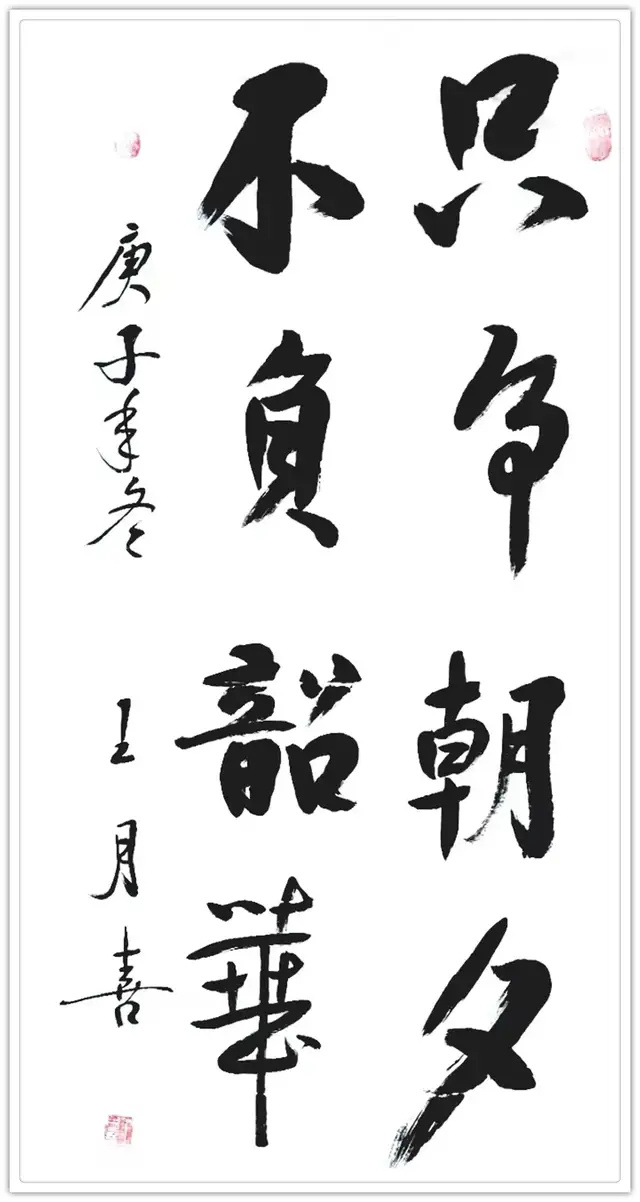 只争朝夕
不负韶華
庚子年冬
王月喜